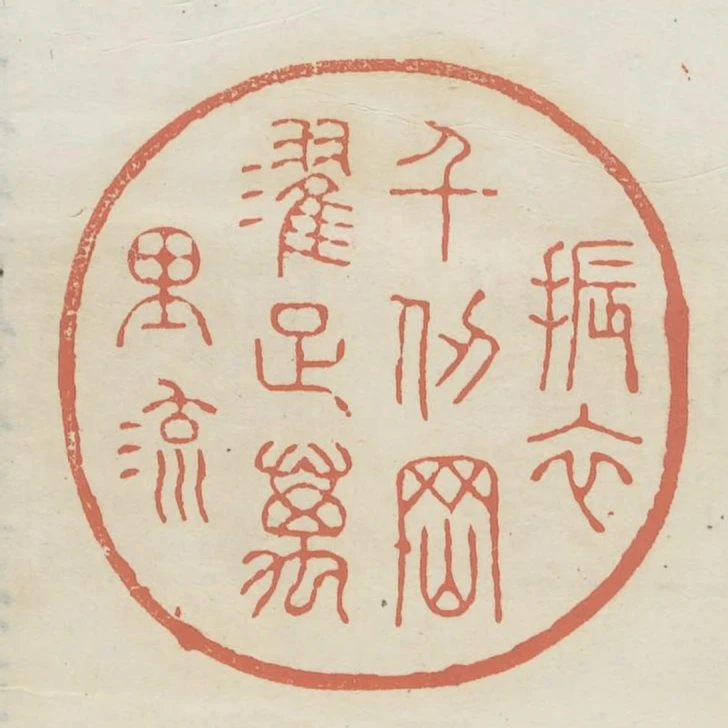 振衣
千仞岡
濯足萬
里流